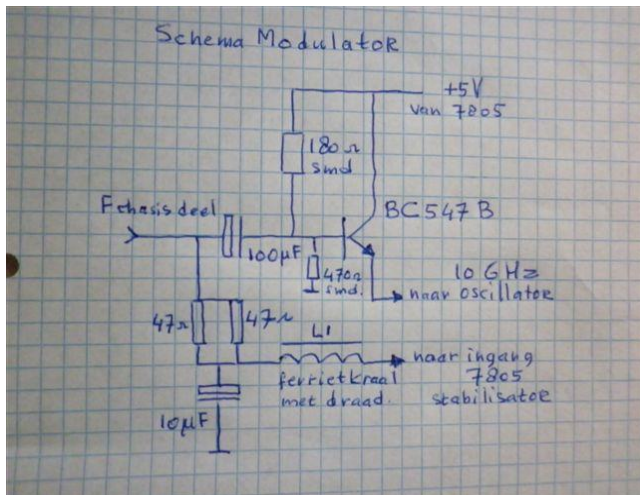 Schema Modulator
+5V
van 7805
180Ω
smd
F chasis deel
BC547B
100µF
470Ω
smd.
10 GHz
naar oscillator
47Ω
47Ω
L1
naar ingang
7805
stabilisator
ferrietkraal
met draad.
10µF